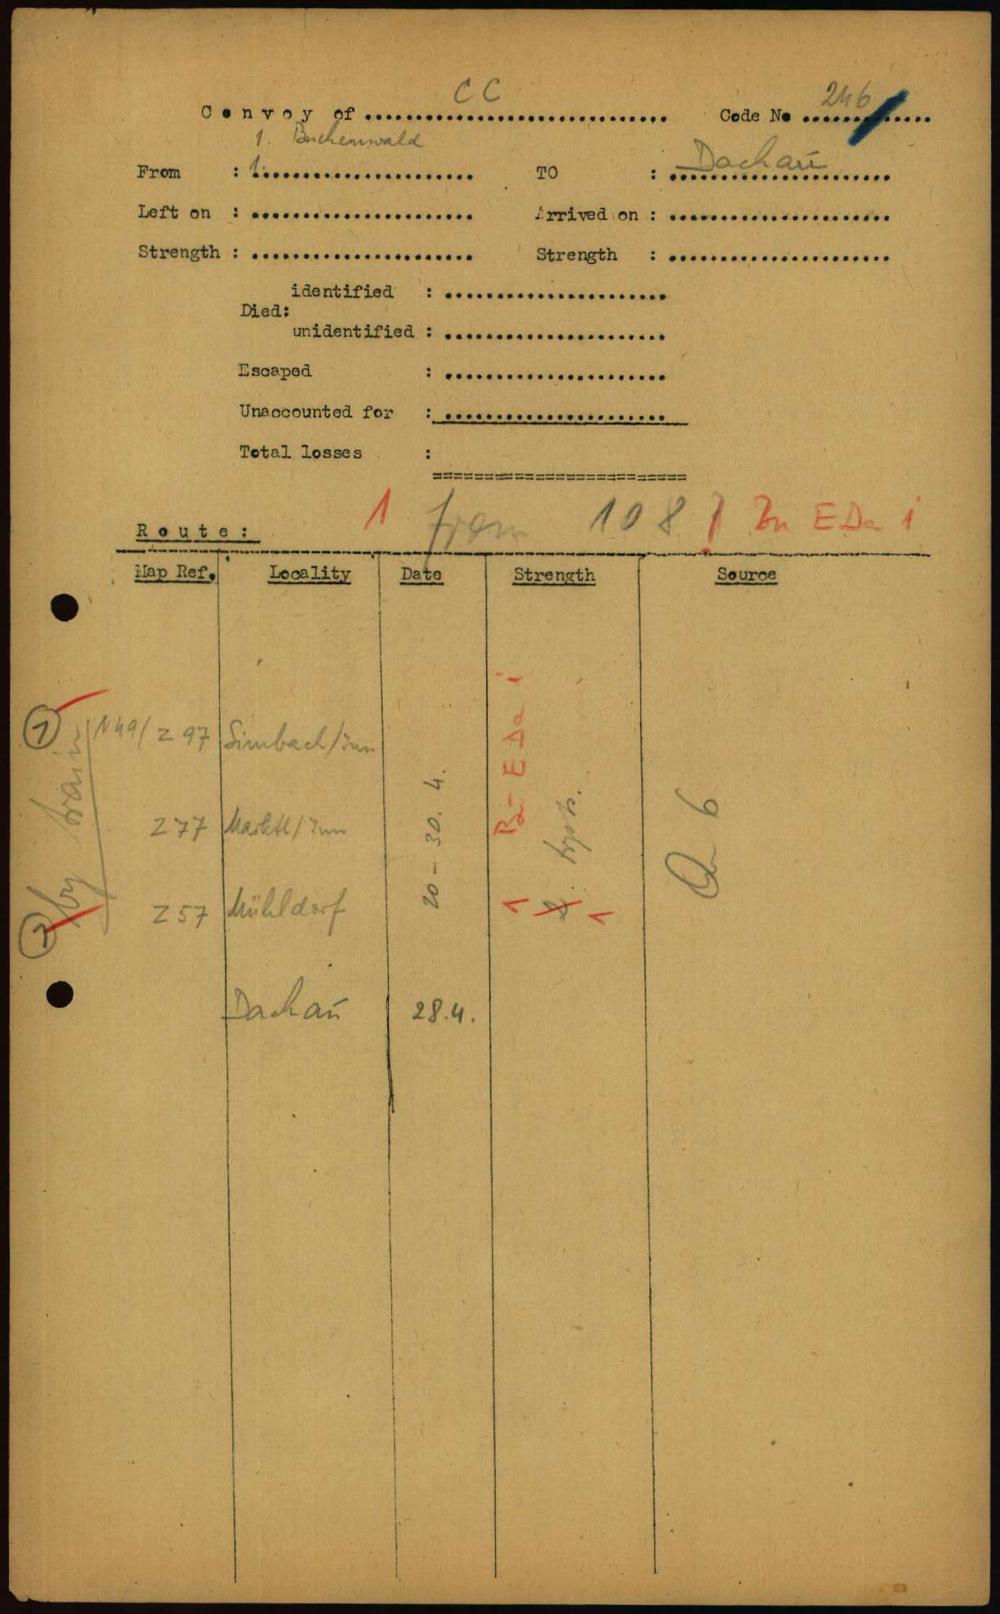 Convoy of ..... CC ..... Code No ..... 246
1. Buchenwald
From : 1. ..... TO : Dachau
Left on : ..... Arrived on : .....
Strength : ..... Strength : .....
identified : .....
Died:
unidentified : .....
Escaped : .....
Unaccounted for : .....
Total losses :
=========================
1 from 108
Route:
Map Ref. Locality Date Strength Source
1 N49/Z 97 Simbach/Inn
by train
Z77 Marktl/Inn
20 - 30. 4.
Qu 6
2 Z57 Mühldorf
1 1
Dachau 28.4.